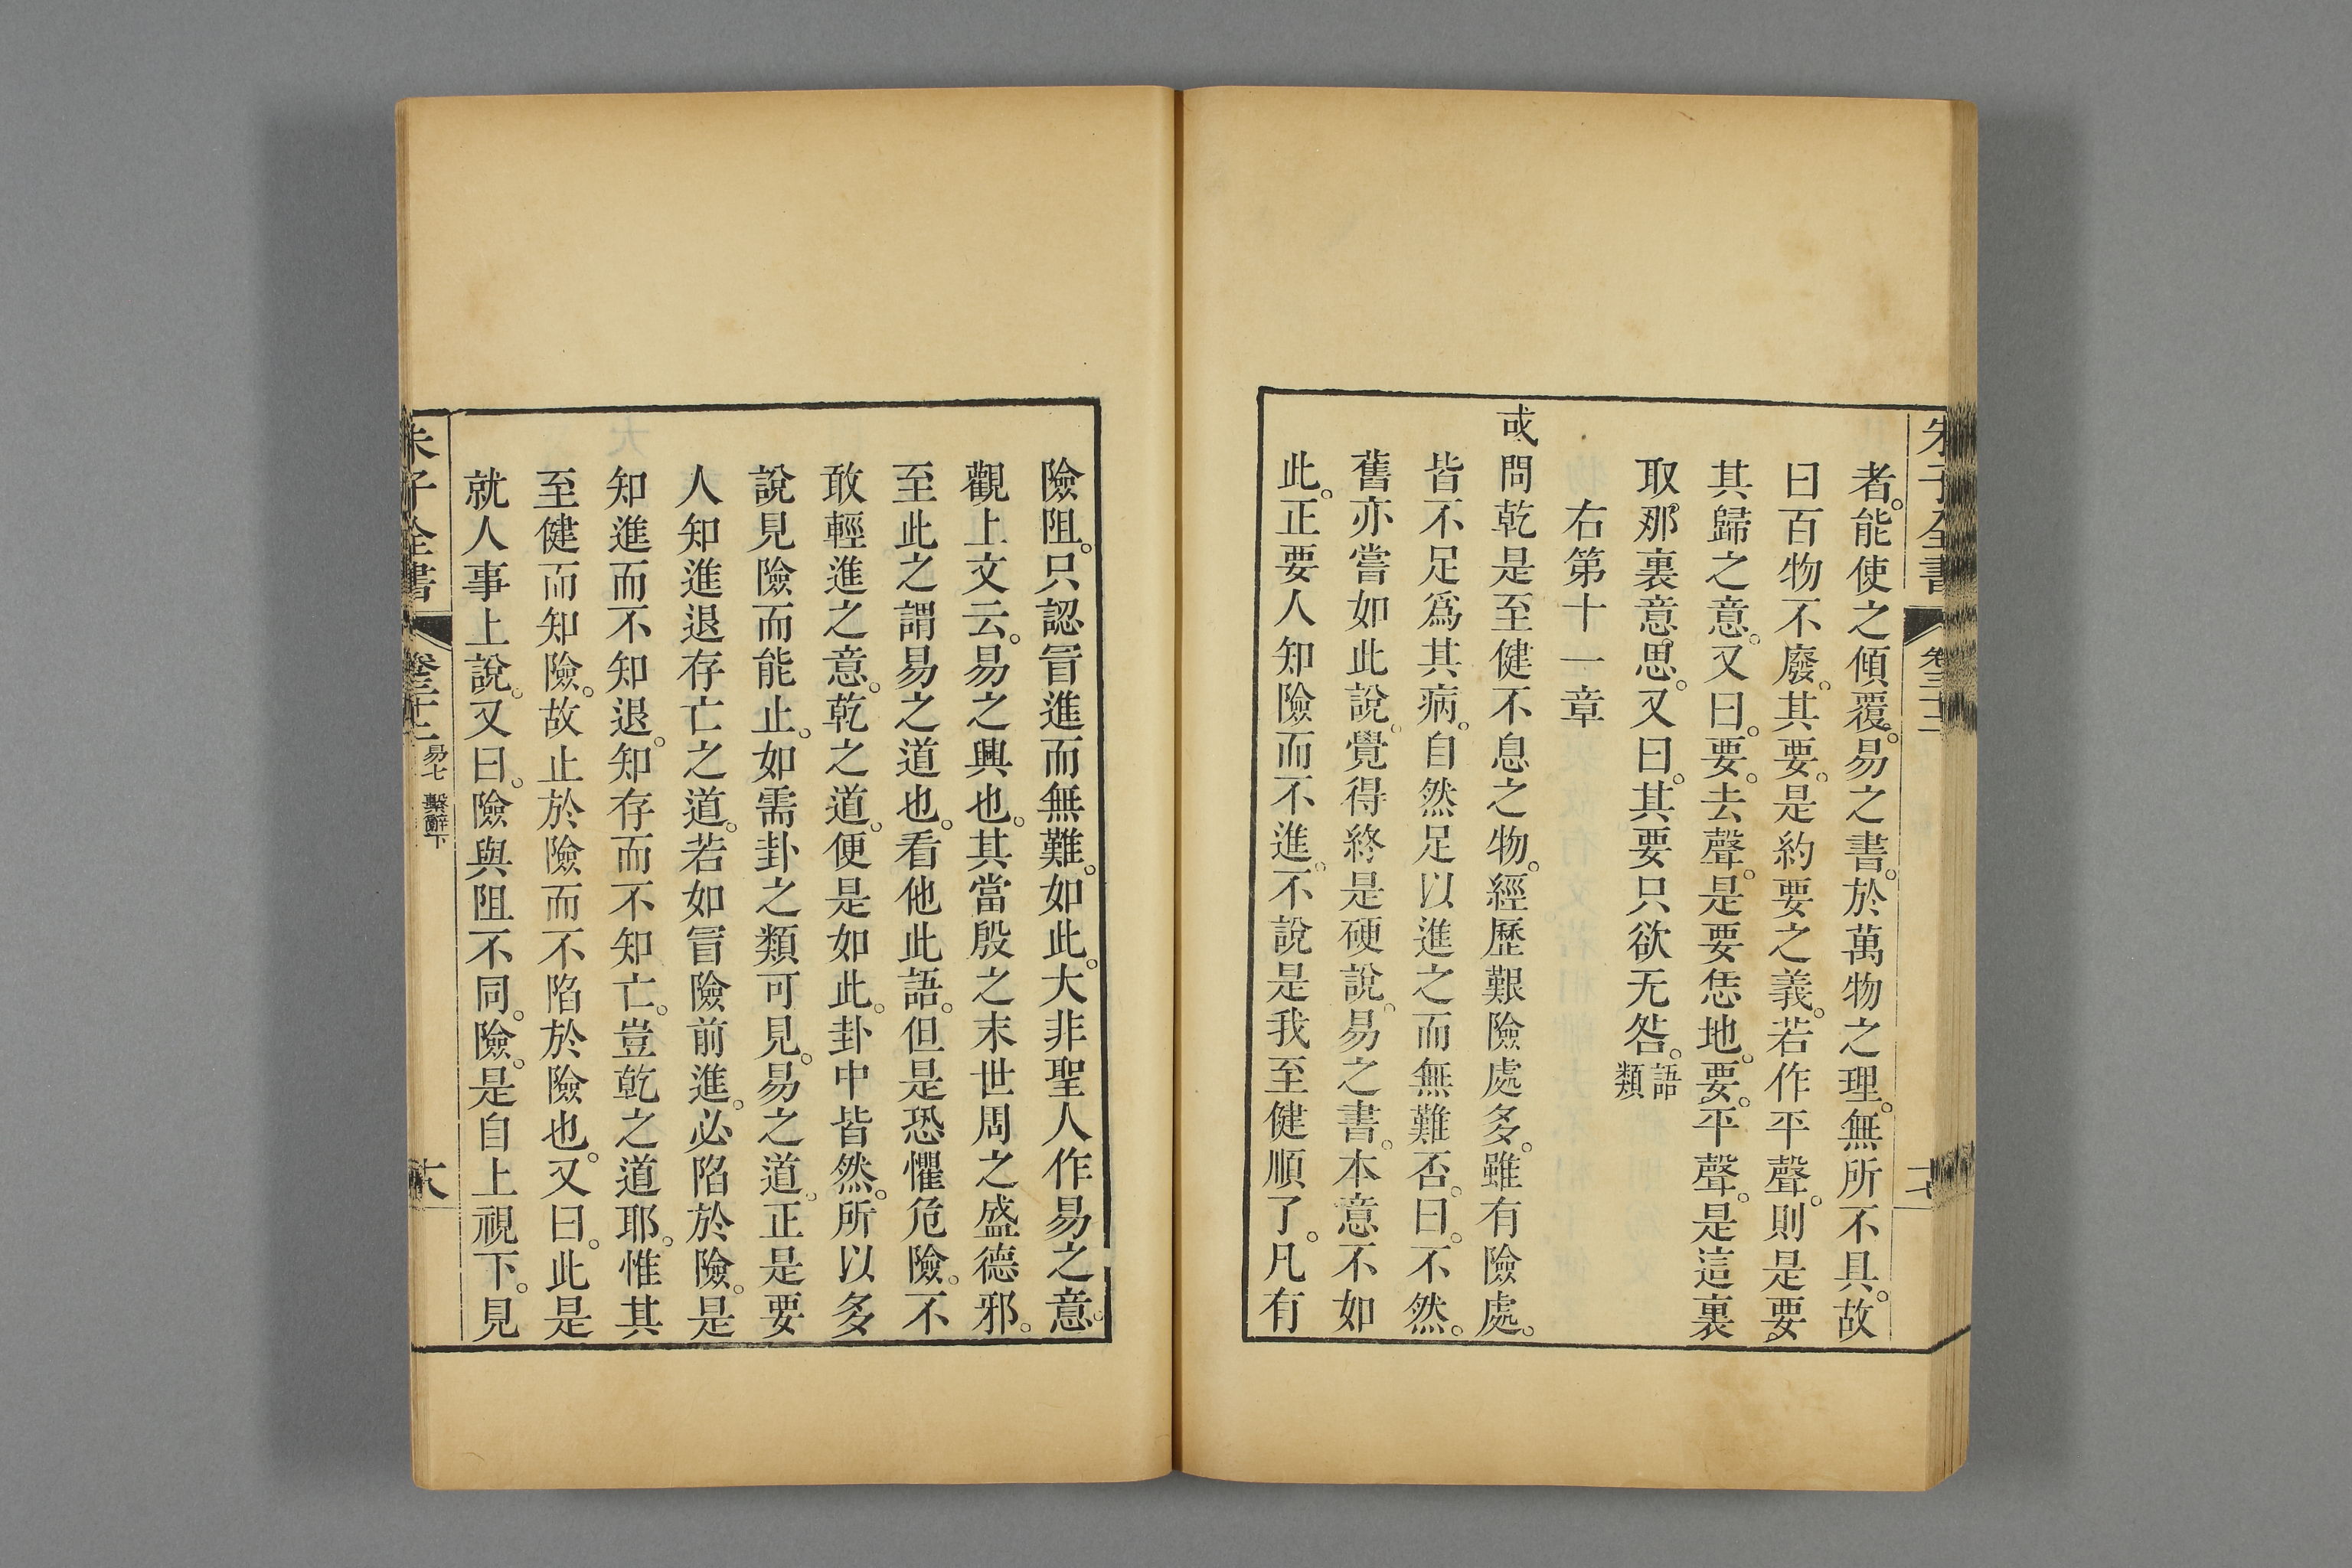 朱子全書
卷三十二
者。能使之傾覆。易之書。於萬物之理。無所不具。故
曰百物不廢。其要。是約要之義。若作平聲。則是要
其歸之意。又曰。要。去聲。是要恁地。要。平聲。是這裏
取那裏意思。又曰。其要只欲无咎。語類
右第十一章
或問乾是至健不息之物。經歷艱險處多。雖有險處。
皆不足爲其病。自然足以進之而無難否。曰。不然。
舊亦嘗如此說。覺得終是硬說。易之書。本意不如
此。正要人知險而不進。不說是我至健順了。凡有
險阻。只認冐進而無難。如此。大非聖人作易之意。
觀上文云。易之興也。其當殷之末世周之盛德邪。
至此之謂易之道也。看他此語。但是恐懼危險。不
敢輕進之意。乾之道。便是如此。卦中皆然。所以多
說見險而能止。如需卦之類可見。易之道。正是要
人知進退存亡之道。若如冐險前進。必陷於險。是
知進而不知退。知存而不知亡。豈乾之道耶。惟其
至健而知險。故止於險而不陷於險也。又曰。此是
就人事上說。又曰。險與阻不同。險。是自上視下。見
朱子全書
易七 繫辭下